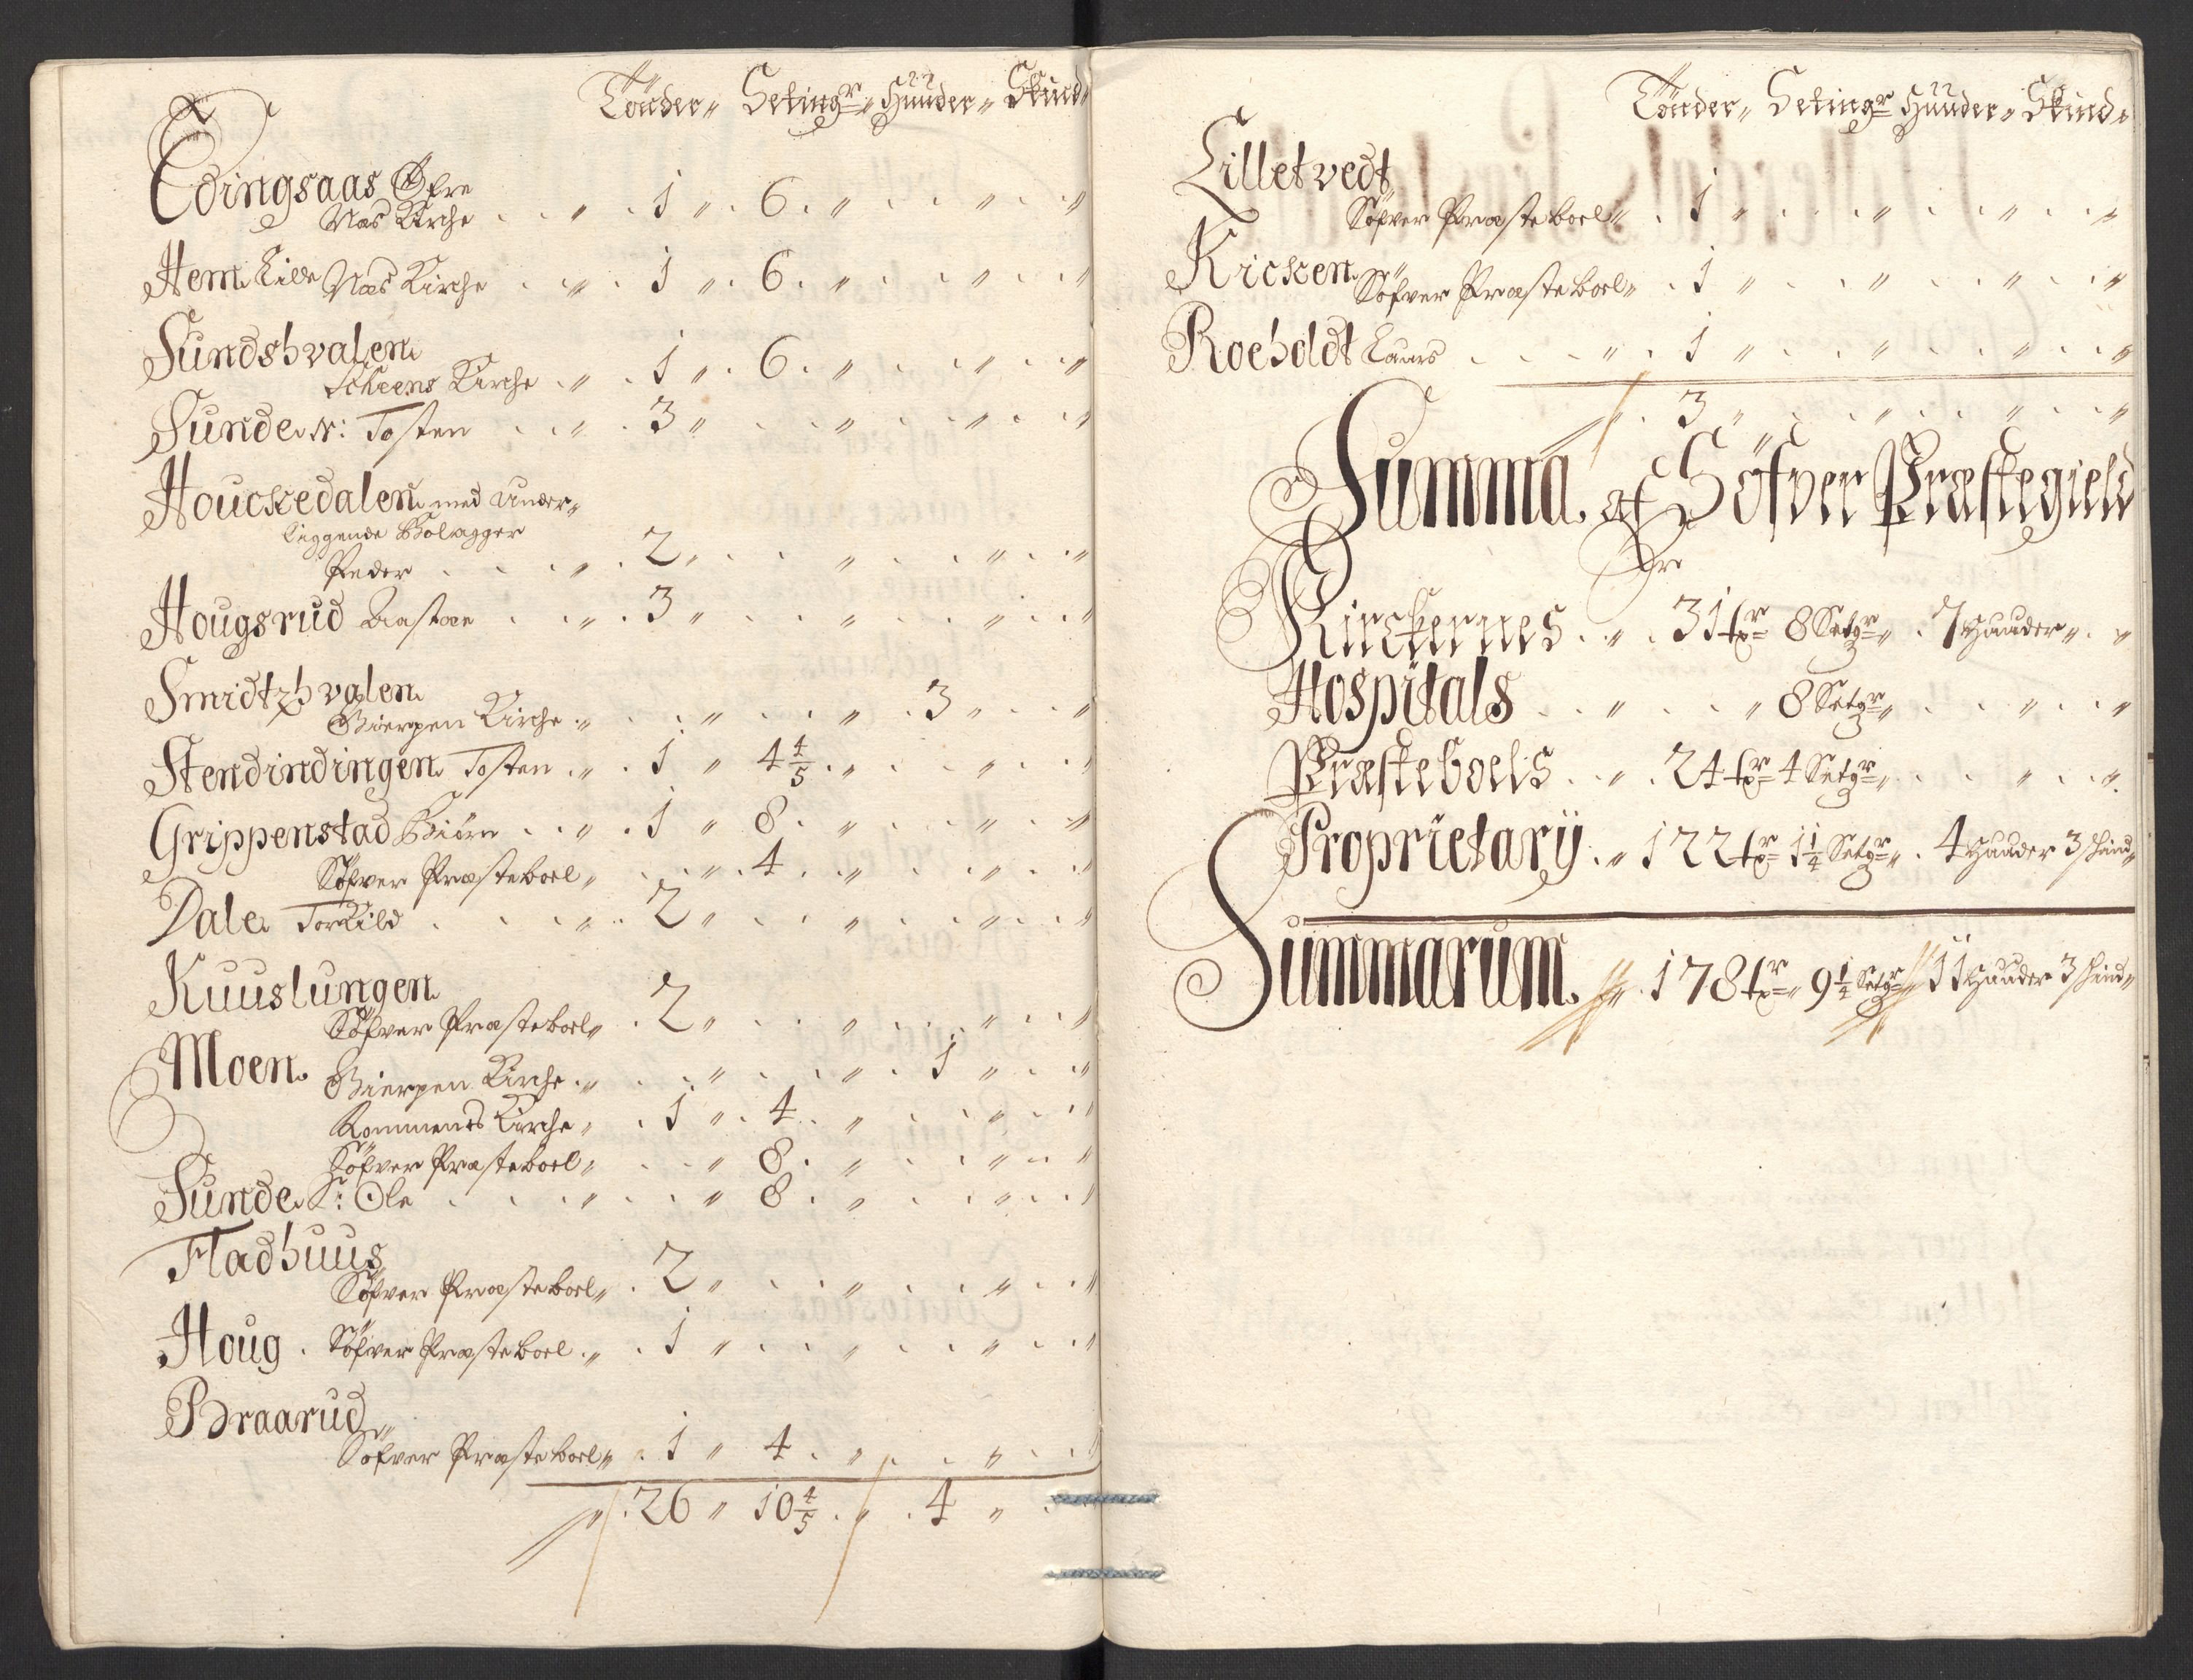 Tönder „ Setingr „ Huuder „ Skind „
Edingsaas Øfre
Næs Kirche . . „ . 1 „ . 6 . „ . . „ . . „
Hem Lille Næs Kirche . . „ . 1 „ . 6 . „ . . „ . . „
Sundshvalen
Scheens Kirche . „ . 1 „ . 6 . „ . . „ . . „
Sunde N: Tosten . . „ . 3 „ . . „ . . „ . . „
Houckedalen med under-
liggende Bolagger
Peder . . . „ . 2 „ . . „ . . „ . . „
Hougsrud Aastæn . . „ . 3 „ . . „ . . „ . . „
Smidtzhvalen
Gierpen Kirche . „ . . „ . . „ . 3 „ . . „
Stendindingen Tosten . „ . 1 „ 4 4/5 . „ . . „ . . „
Grippenstad Biörn . . „ . 1 „ 8 . „ . . „ . . „
Söfver Præsteboel „ . . „ . 4 . „ . . „ . . „
Dale Torkild . . . „ . 2 „ . . „ . . „ . . „
Kuuslungen
Söfver Præsteboel „ . 2 „ . . „ . . „ . . „
Moen Gierpen Kirche . „ . . „ . . „ . 1 „ . . „
Rommenes Kirche „ . 1 „ . 4 . „ . . „ . . „
Söfver Præsteboel „ . . „ 8 . „ . . „ . . „
Sunde S: Ole . . . „ . . „ 8 . „ . . „ . . „
Fladhuus
Söfver Præsteboel „ . 2 „ . . „ . . „ . . „
Houg . Söfver Præsteboel . „ . 1 „ . . „ . . „ . . „
Braarud
Söfver Præsteboel „ . 1 „ 4 . „ . . „ . . „
„ . 26 „ 10 4/5 . „ . 4 „ .
Tönder „ Setingr Huuder „ Skind „
Lilletvedt
Söfver Præsteboel „ . 1 „ . . „ . . „ . . „
Kicken Söfver Præsteboel „ . 1 „ . . „ . . „ . . „
Roeholdt Laurs . . . „ . 1 „ . . „ . . „ . . „
„ . 3 „ . . „ . . „ . . „
Summa af Söfver Præstegield
Er
Kirckernes . „ . 31 tr 8 Setgr „ . 7 Huuder „ . „
Hospitals . . „ . . „ 8 Setgr „ . . „ . . „
Præsteboels . „ . 24 tr 4 Setgr „ . . „ . . „
Proprietarij . „ 122 tr 1 1/4 Setgr „ . 4 Huuder 3 skind „
Summarum „ . 178 tr „ 9 1/4 Setgr „ 11 Huuder 3 skind „